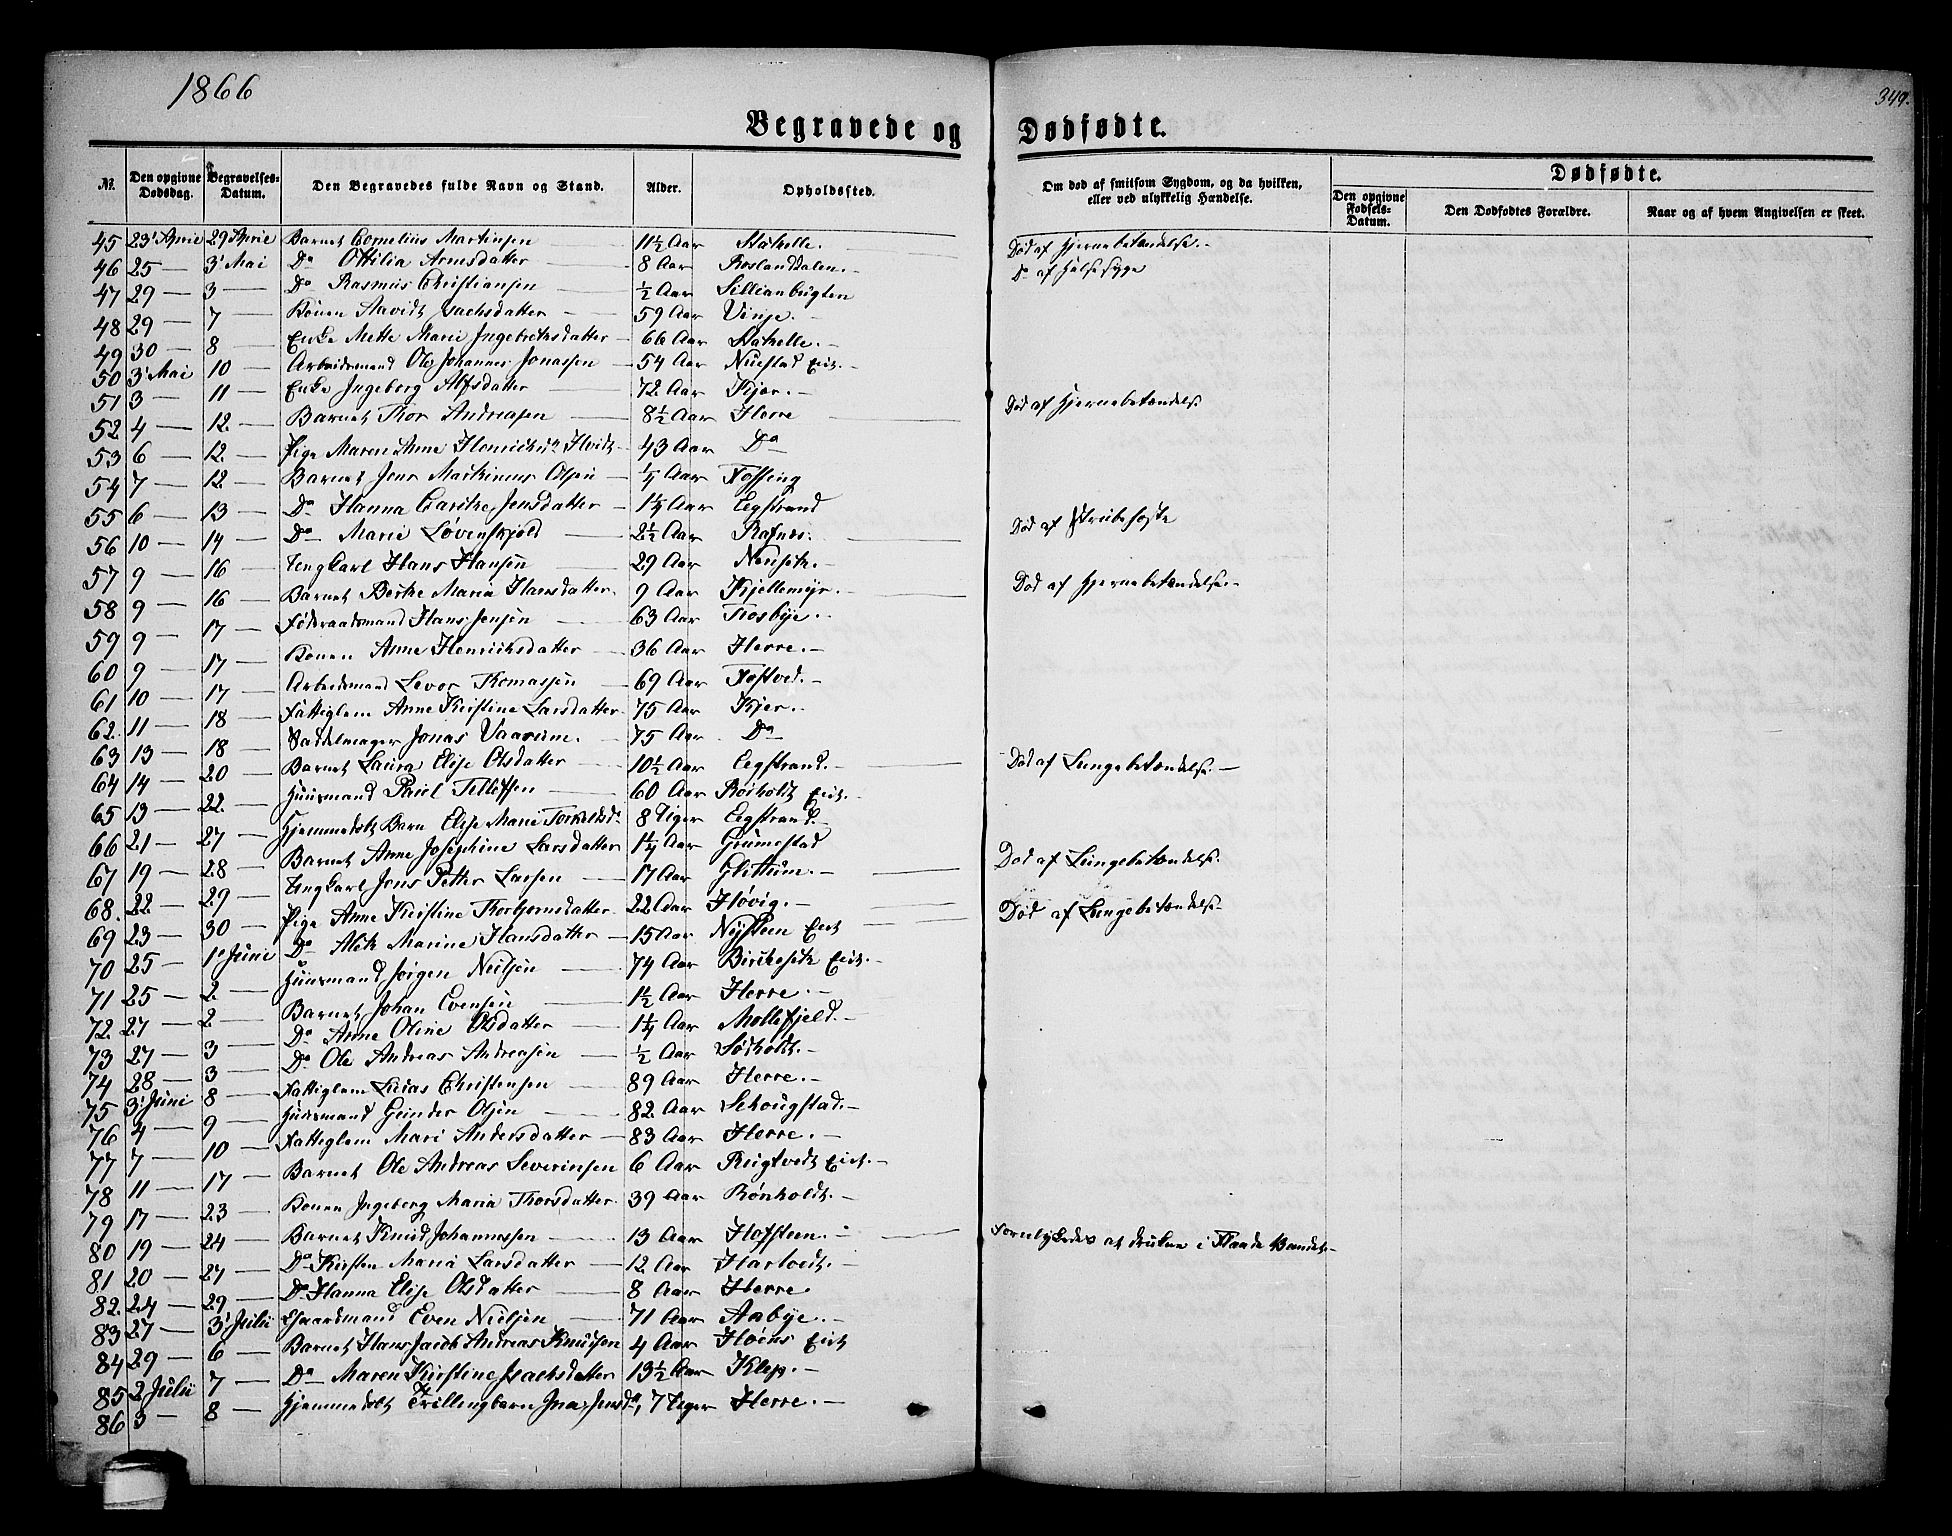 1866
349.
Begravede og Dødfødte.
№. Den opgivne Dødsdag. Begravelses-Datum. Den Begravedes fulde Navn og Stand. Alder. Opholdssted. Om død af smitsom Sygdom, og da hvilken, eller ved ulykkelig Hændelse. Dødfødte.
Den opgivne Fødsels-Datum. Den Dødfødtes Forældre. Naar og af hvem Angivelsen er skeet.
45 23' April 29 April Barnet Cornelius Martinsen 11½ Aar Stathelle. Død af Hjernebetændelse.
46 25 — 3' Mai Do Ottilia Arnesdatter 8 Aar Roslanddalen. Do af Halssyge
47 29 — 3 — Do Rasmus Christiansen ½ Aar
48 29 — 7 — Konen Isachsdatter 59 Aar Vinje.
49 30 — 8 — Enke Mette Marie Ingebrethsdatter 66 Aar Stathelle.
50 3' Mai 10 — Arbeidsmand Ole Johannes Jonassen 54 Aar Nustad Eiet.
51 3 — 11 — Enke Ingeborg Alfsdatter 72 Aar Kjær.
52 4 — 12 — Barnet Thor Andreasen 8½ Aar Herre Død af Hjernebetændelse
53 6 — 12 — Pige Maren Anne Henrichsdr Hvidt 43 Aar Do
54 7 — 12 — Barnet Jens Martinius Olsen ¼ Aar Fossing
55 6 — 13 — Do Hanna Jensdatter 1¼ Aar Eegstrand
56 10 — 14 — Do Marie Løvenskjold 2½ Aar Rafnes. Død af Strubehoste
57 9 — 16 — Ungkarl Hans Hansen 29 Aar
58 9 — 16 — Barnet Berthe Maria Hansdatter 9 Aar Kjellemyr. Død af Hjernebetændelse.
59 9 — 17 — Føderaadsmand Hans Jensen 63 Aar Trosbye.
60 9 — 17 — Konen Anne Henrichsdatter 36 Aar Herre.
61 10 — 17 — Arbeidsmand Levor Thomassen 69 Aar Tostved.
62 11 — 18 — Fattiglem Anne Kirstine Larsdatter 75 Aar Kjær.
63 13 — 18 — Sadelmager Jonas Vaarum. 75 Aar Do
64 14 — 20 — Barnet Laura Elise Olsdatter 10½ Aar Eegstrand. Død af Lungebetændelse.
65 13 — 22 — Huusmand Paul Tellefsen 60 Aar Rønholdt Eiet.
66 21 — 27 — Hjemmedøbt Barn Elise Marie Torkelsdr 8 Uger Eegstrand.
67 19 — 28 — Barnet Anne Josephine Larsdatter 1¼ Aar Grumestad Død af Lungebetændelse.
68 22 — 29 — Ungkarl Jens Petter Larsen 17 Aar Glittum.
69 23 — 30 — Pige Anne Kirstine Thorbjørnsdatter 22 Aar Høvig. Død af Lungebetændelse
70 25 — 1' Juni Do Aleth Marine Hansdatter 15 Aar Nysteen Eiet
71 25 — 2 — Huusmand Jørgen Nielsen 74 Aar Eiet.
72 27 — 2 — Barnet Johan Evensen 1½ Aar Herre.
73 27 — 3 — Do Anne Oline Olsdatter 1¼ Aar Mollefjeld.
74 28 — 3 — Do Ole Andreas Andreasen ½ Aar
75 3' Juni 8 — Fattiglem Lucas Christensen 89 Aar Herre.
76 4 — 9 — Huusmand Gunder Olsen 82 Aar Schougstad.
77 7 — 10 — Fattiglem Mari Andersdatter 83 Aar Herre.
78 11 — 17 — Barnet Ole Andreas Severinsen 6 Aar Rugtvedt Eiet.
79 17 — 23 — Konen Ingeborg Maria Thorsdatter 39 Aar Rønholdt.
80 19 — 24 — Barnet Knud Johannessen 13 Aar Hofsteen. Forulykkedes at drukne i Vandet.
81 20 — 27 — Do Kirsten Maria Larsdatter 12 Aar Hartvedt.
82 24 — 29 — Do Hanna Elise Olsdatter 8 Aar Herre.
83 27 — 3' Juli Gaardmand Even Nielsen 71 Aar Aabye.
84 29 — 6 — Barnet Hans Jacob Andreas Knudsen 4 Aar Høens Eiet
85 2 Juli 7 — Do Maren Kirstine Isachsdatter 13½ Aar Klep.
86 3 — 8 — Hjemmedøbt Trillingbarn Ina Jensdr, 7 Uger Herre.